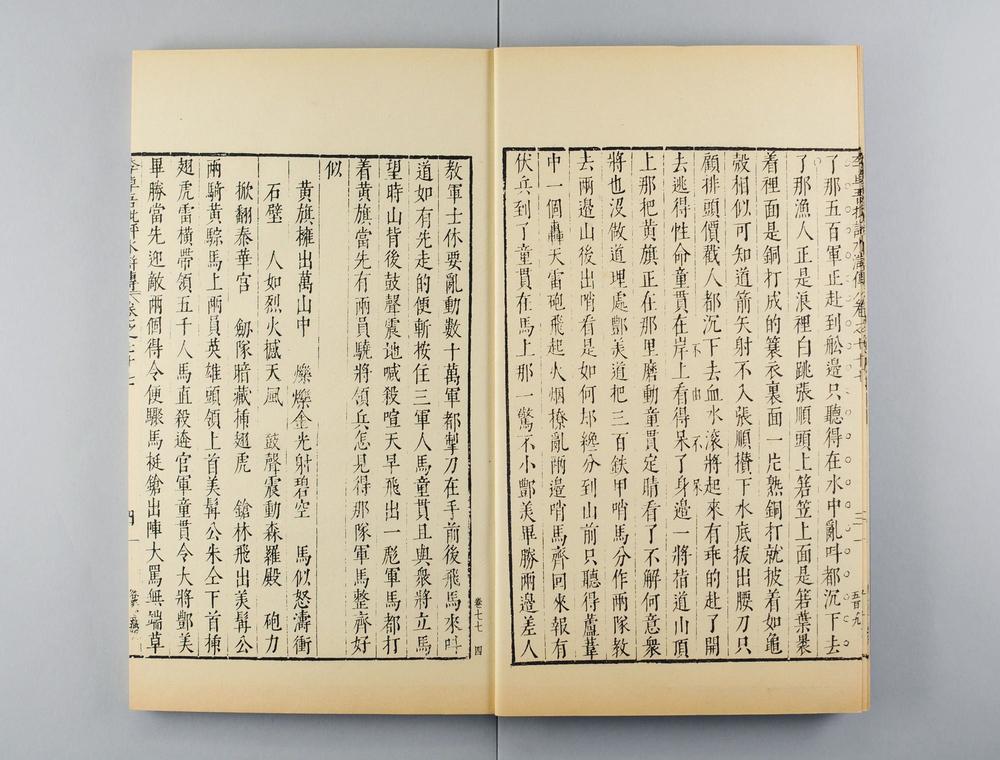 了那五百軍正赴到船邊只聽得在水中亂呌都沉下去
了那漁人正是浪裡白跳張順頭上箬笠上面是箬葉裹
着裡面是銅打成的簑衣裏面一片熟銅打就披着如龜
殼相似可知道箭矢射不入張順攢下水底拔出腰刀只
顧排頭價戳人都沉下去血水滾將起來有乖的赴了開
去逃得性命童貫在岸上看得呆了身邊一將指道山頂
不由不呆
上那把黃旗正在那里磨動童貫定睛看了不解何意衆
將也沒做道理處酆美道把三百鉄甲哨馬分作兩隊教
去兩邉山後出哨看是如何却纔分到山前只聽得蘆葦
中一個轟天雷砲飛起火烟撩亂兩邉哨馬齊回來報有
伏兵到了童貫在馬上那一驚不小酆美畢勝兩邉差人
卷七七 四
教軍士休要亂動數十萬軍都掣刀在手前後飛馬來呌
道如有先走的便斬按住三軍人馬童貫且與衆將立馬
望時山背後鼓聲震地喊殺喧天早飛出一彪軍馬都打
着黃旗當先有兩員驍將領兵怎見得那隊軍馬整齊好
似
黃旗擁出萬山中 爍爍金光射碧空 馬似怒濤衝
石壁 人如烈火撼天風 鼓聲震動森羅殿 砲力
掀翻泰華宮 劒隊暗藏揷翅虎 鎗林飛出美髯公
兩騎黃騌馬上兩員英雄頭領上首美髯公朱仝下首揷
翅虎雷橫帶領五千人馬直殺逩官軍童貫令大將酆美
畢勝當先迎敵兩個得令便驟馬挺鎗出陣大罵無端草